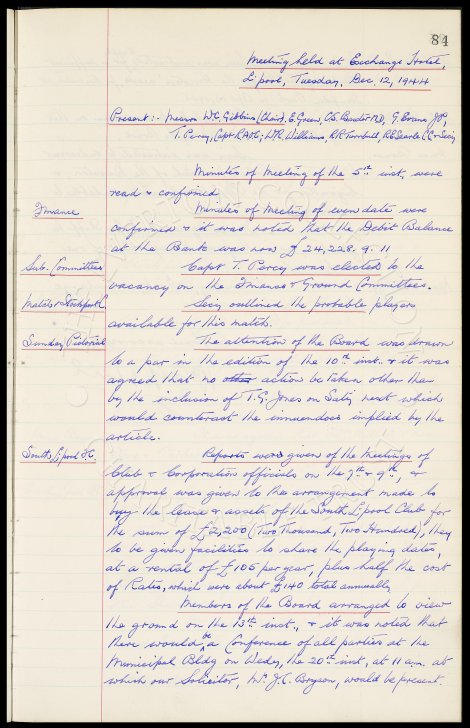 84
Meeting held at Exchange Hotel,
L'pool, Tuesday, Dec. 12, 1944
Present:- Messrs W.C. Gibbins (Chair), E. Green, C.S. Baxter M.D., G. Evans J.P.,
T. Percy, Capt. R.A.O.C., W.R. Williams, R.R. Turnbull, R.E. Searle C.C. & Secy.
Minutes of Meeting of the 5th inst. were
read & confirmed
Finance
Minutes of Meeting of even date were
confirmed & it was noted that the Debit Balance
at the Bank was now £24,228. 9. 11
Sub. Committees
Capt T. Percy was elected to the
vacancy on the Finance & Ground Committees.
Match v Stockport C.
Secy outlined the probable players
available for this match.
Sunday Pictorial
The attention of the Board was drawn
to a par in the edition of the 10th inst. & it was
agreed that no other action be taken other than
by the inclusion of T.G. Jones on Saty next which
would counteract the innuendoes implied by the
article.
South L'pool F.C.
Reports were given of the Meetings of
Club & Corporation officials on the 7th & 9th, &
approval was given to the arrangement made to
buy the lease & assets of the South L'pool Club for
the sum of £2,200 (Two Thousand, Two Hundred), they
to be given facilities to share the playing dates,
at a rental of £105 per year, plus half the cost
of Rates, which were about £140 total annually
Members of the Board arranged to view
the ground on the 13th inst., & it was noted that
there would be a Conference of all parties at the
Municipal Bldg on Wedy, the 20th inst, at 11 a.m. at
which our Solicitor, Mr J.C. Bryson, would be present.